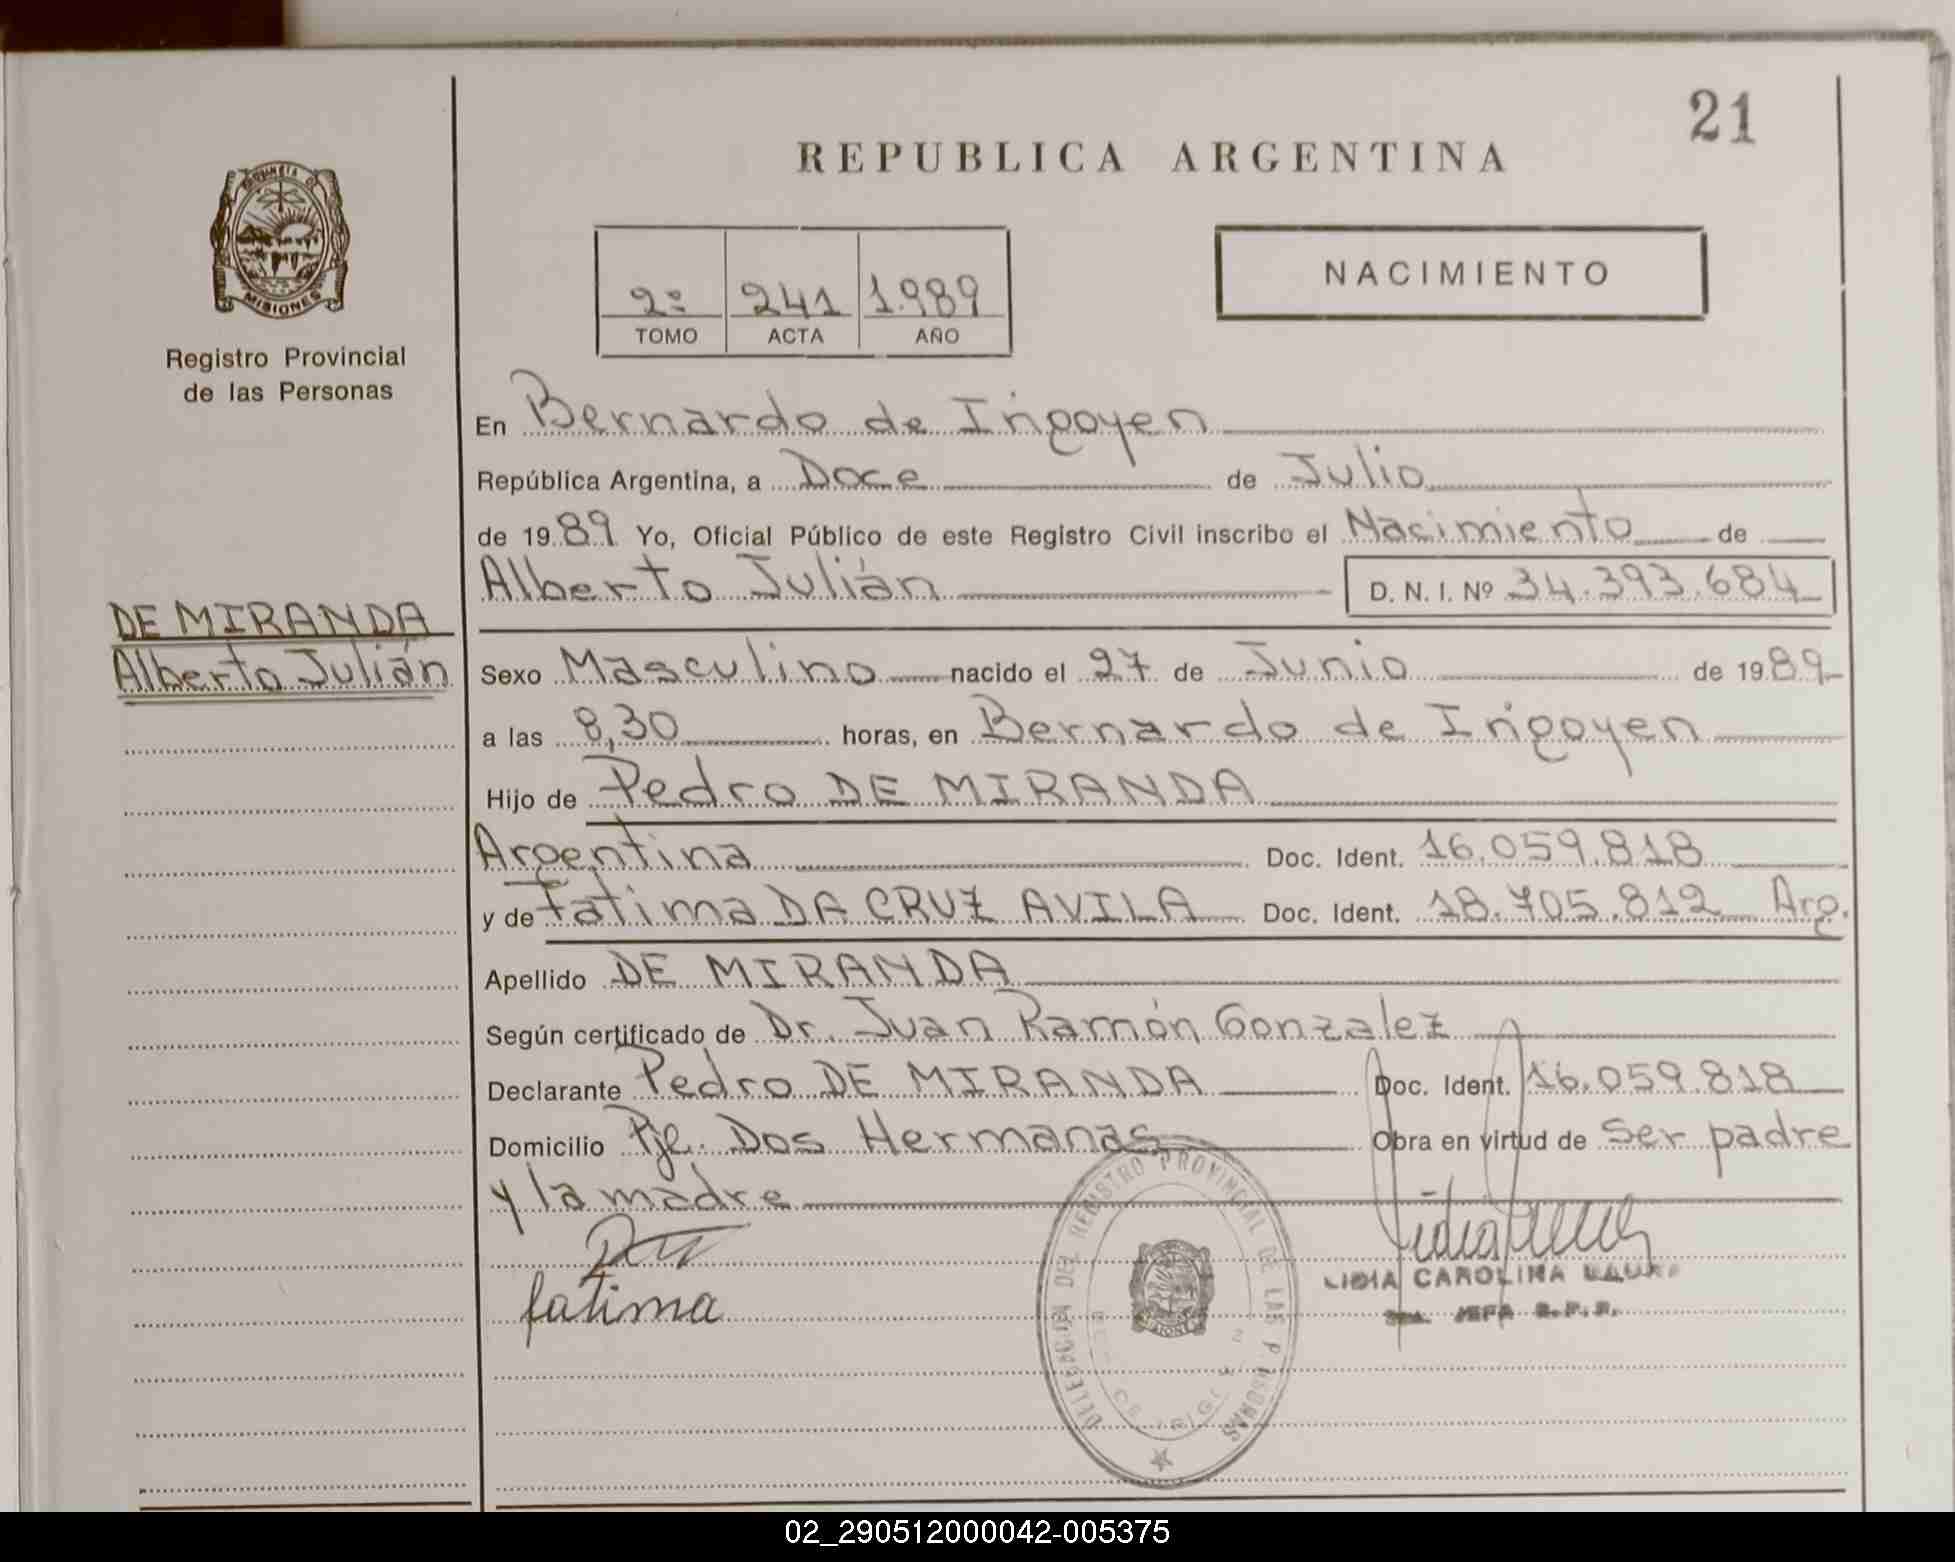 21
REPUBLICA ARGENTINA
PROVINCIA DE
MISIONES
Registro Provincial
de las Personas
2º 241 1.989
TOMO ACTA AÑO
NACIMIENTO
En Bernardo de Irigoyen
República Argentina, a Doce de Julio
de 1989 Yo, Oficial Público de este Registro Civil inscribo el Nacimiento de
Alberto Julián D. N. I. Nº 34.393.684
DE MIRANDA
Alberto Julián
Sexo Masculino nacido el 27 de Junio de 1989
a las 8,30 horas, en Bernardo de Irigoyen
Hijo de Pedro DE MIRANDA
Argentina Doc. Ident. 16.059.818
y de Fatima DA CRUZ AVILA Doc. Ident. 18.705.812 Arg.
Apellido DE MIRANDA
Según certificado de Dr. Juan Ramón Gonzalez
Declarante Pedro DE MIRANDA Doc. Ident. 16.059.818
Domicilio Pje. Dos Hermanas Obra en virtud de ser padre
y la madre
fatima
DELEGACION DEL REGISTRO PROVINCIAL DE LAS PERSONAS
LIDIA CAROLINA
JEFA R.P.P.
02_290512000042-005375